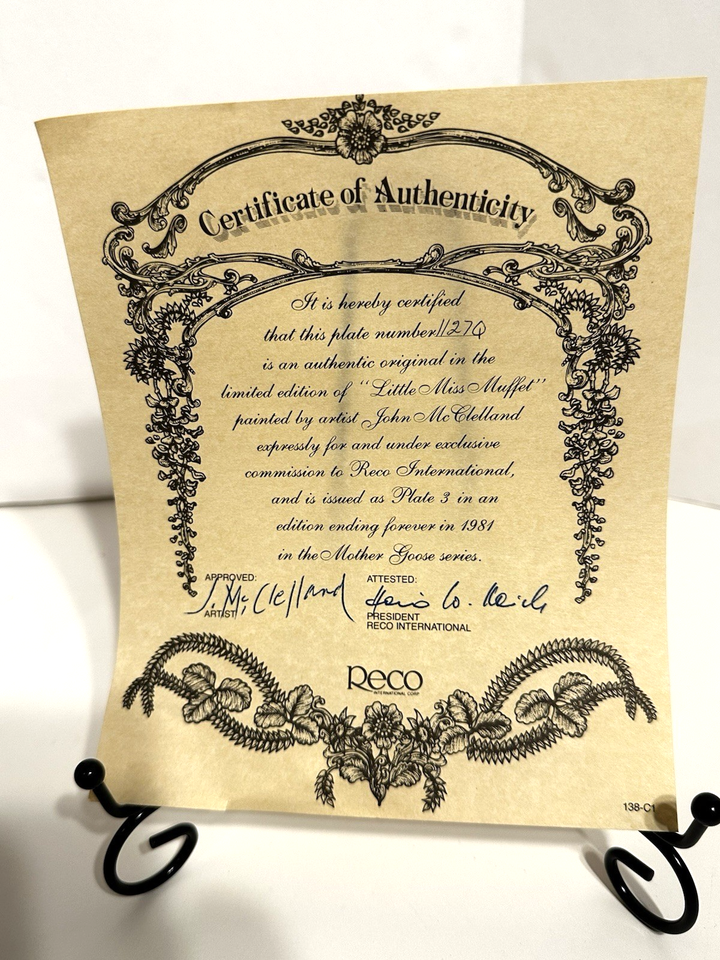 Certificate of Authenticity
It is hereby certified
that this plate number 1127Q
is an authentic original in the
limited edition of "Little Miss Muffet"
painted by artist John McClelland
expressly for and under exclusive
commission to Reco International,
and is issued as Plate 3 in an
edition ending forever in 1981
in the Mother Goose series.
APPROVED: ATTESTED:
J. McClelland
ARTIST PRESIDENT
RECO INTERNATIONAL
Reco
INTERNATIONAL CORP.
138-C1